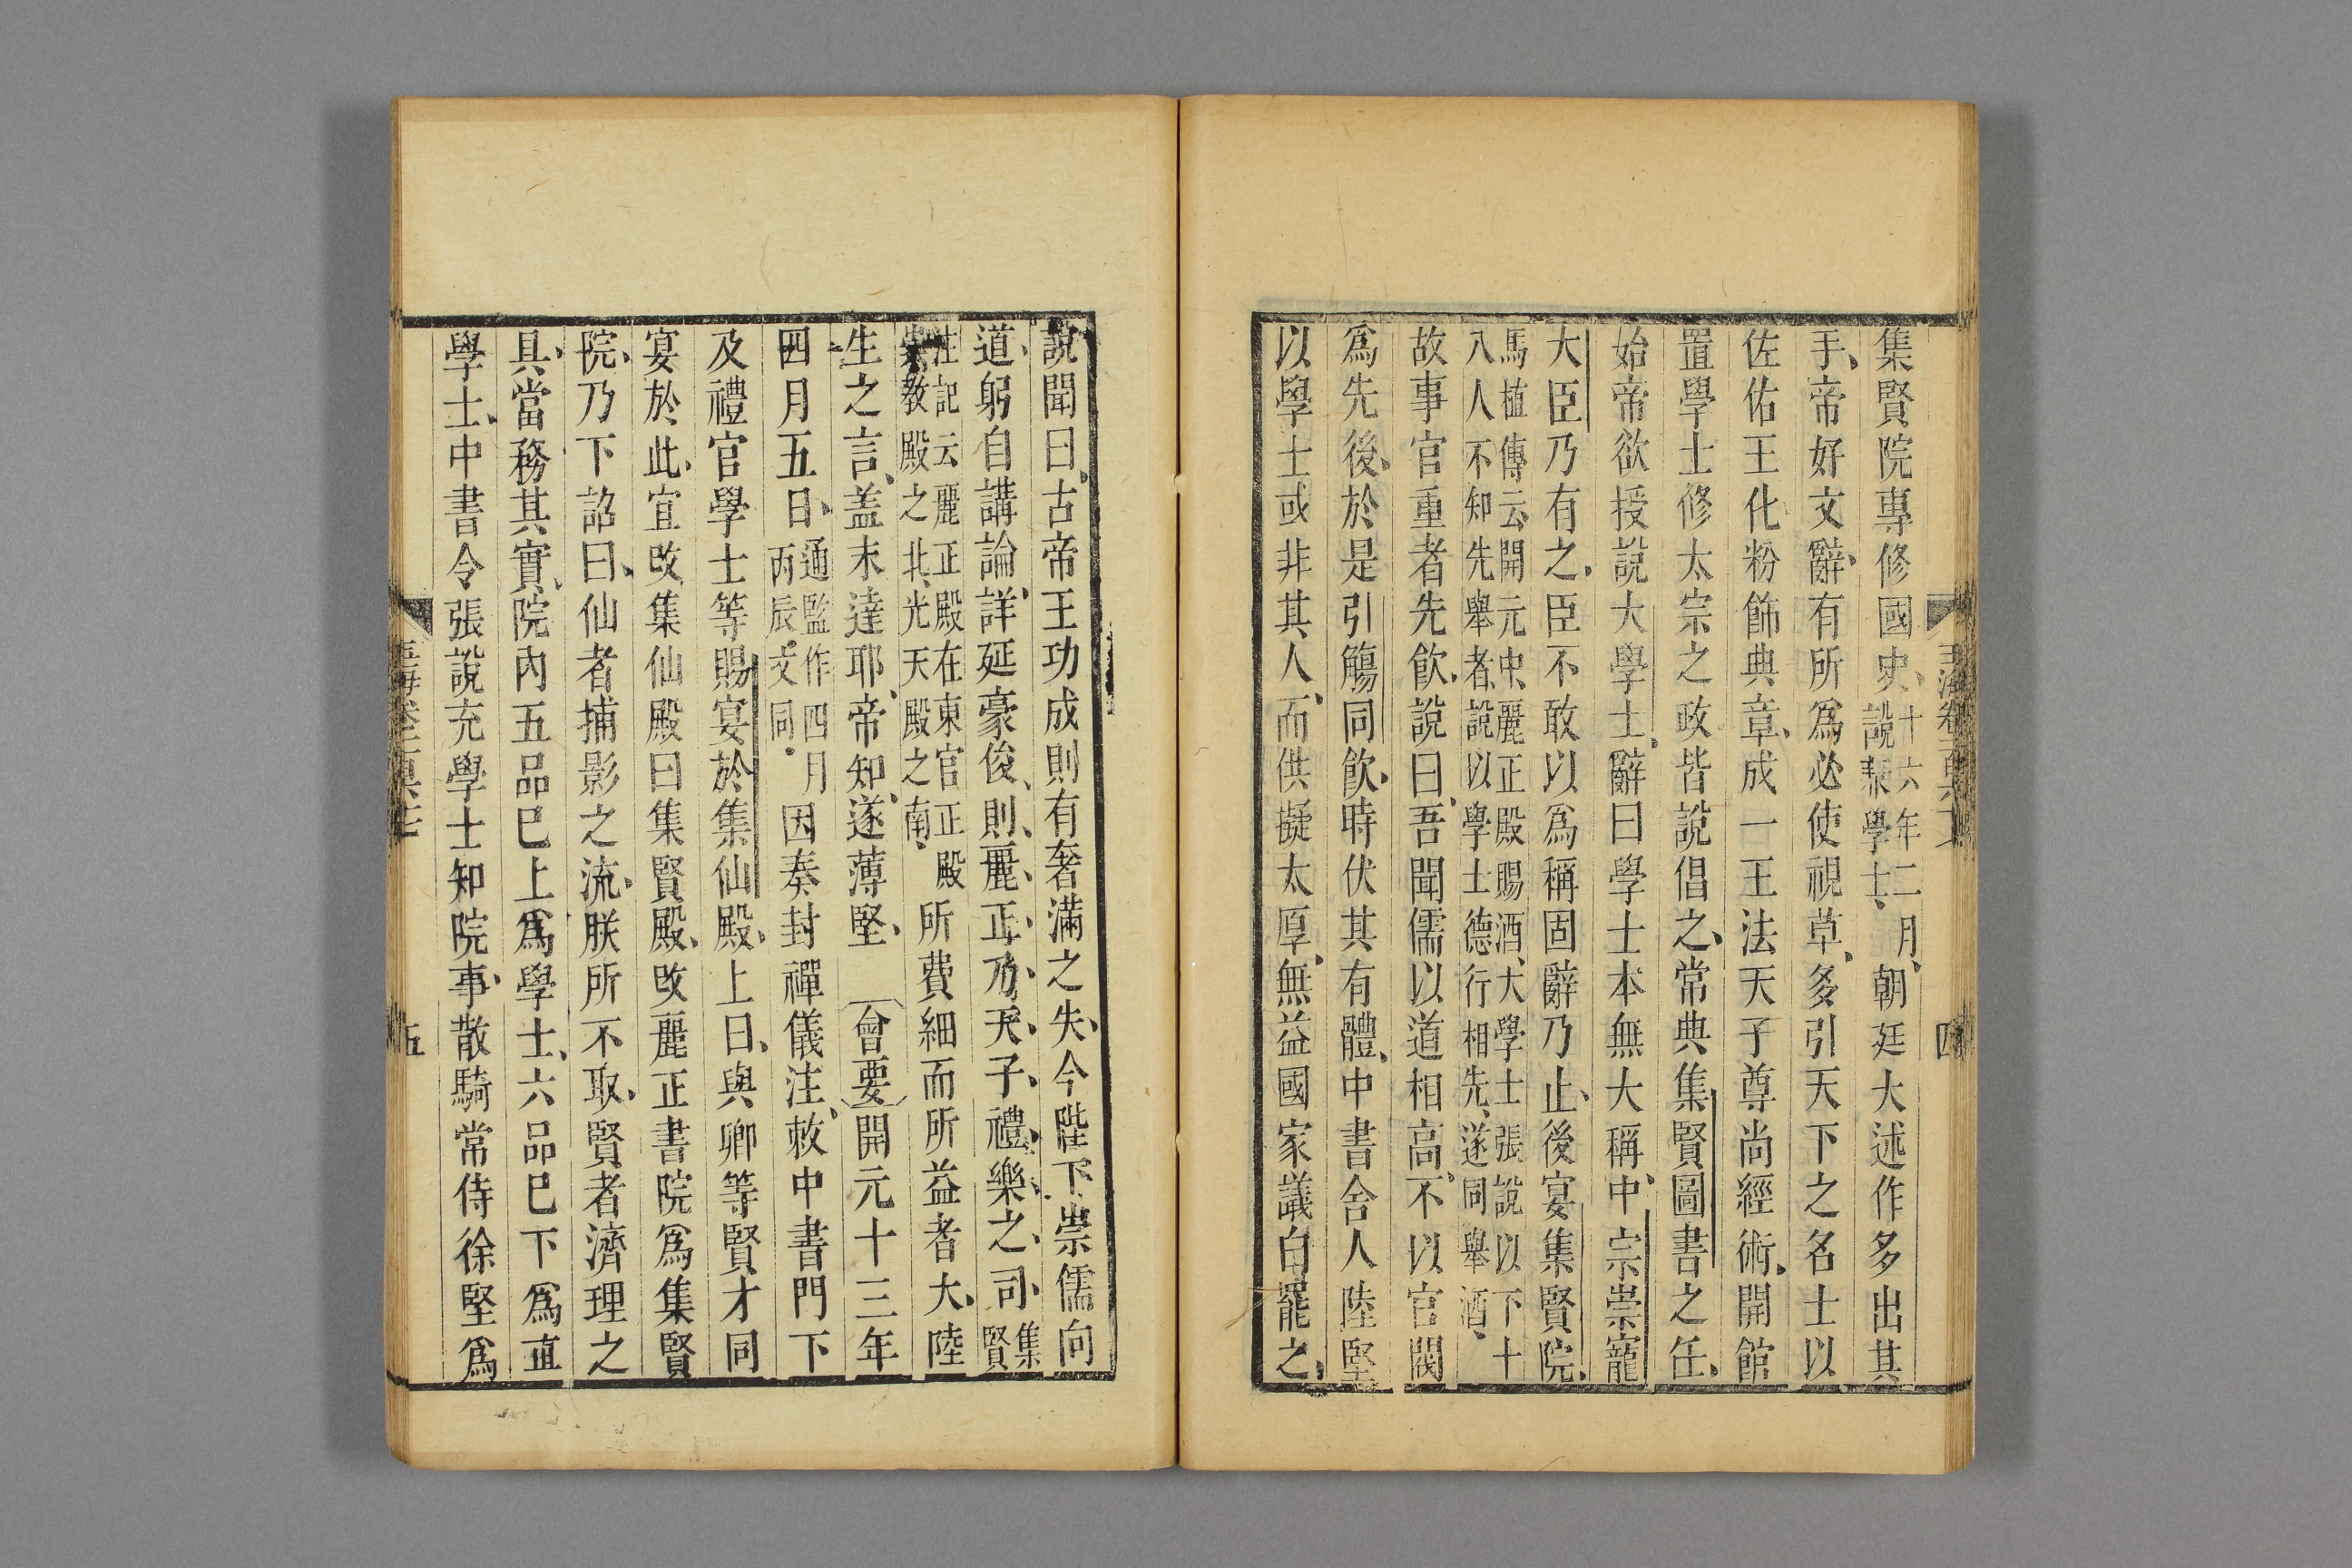 集賢院專修國史、十六年二月、說兼學士、朝廷大述作多出其
手、帝好文辭、有所爲必使視草、多引天下之名士以
佐佑王化粉飾典章、成一王法天子尊尚經術、開館
置學士修太宗之政皆說倡之、常典集賢圖書之任、
始帝欲授說大學士、辭曰學士本無大稱、中宗崇寵
大臣乃有之、臣不敢以爲稱固辭乃止、後宴集賢院、
馬植傳云、開元中、麗正殿賜酒、大學士張說以下十
八人不知先舉者、說以學士德行相先、遂同舉酒、
故事官重者先飮、說曰、吾聞儒以道相高、不以官閥
爲先後、於是引觴同飮、時伏其有體、中書舍人陸堅
以學士或非其人、而供擬太厚、無益國家議白罷之、
四
說聞曰、古帝王功成則有奢滿之失、今陛下崇儒向
道、躬自講論、詳延豪俊、則、麗、正、乃、天、子、禮、樂、之、司、集賢
注記云麗正殿在東宮正殿
崇教殿之北、光天殿之南、所費細而所益者大、陸
生之言、盖未達耶、帝知、遂薄堅、會要開元十三年
四月五日、通監作四月丙辰、文同、因奏封禪儀注、敕中書門下
及禮官學士等賜宴於集仙殿、上曰、與卿等賢才同
宴於此、宜改集仙殿曰集賢殿、改麗正書院爲集賢
院、乃下詔曰、仙者捕影之流、朕所不取、賢者濟理之
具、當務其實、院內五品已上爲學士、六品已下爲直
學士、中書令張說充學士知院事、散騎常侍徐堅爲
五